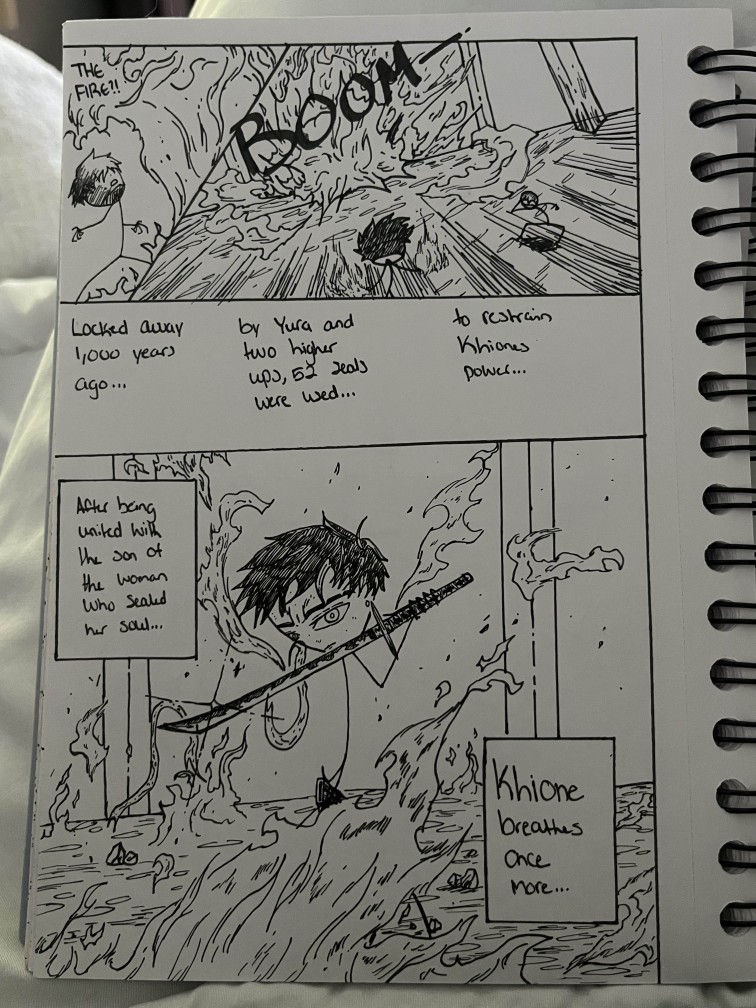 THE
FIRE!!
BOOM—
Locked away
1,000 years
ago...
by Yura and
two higher
ups, 52 seals
were used...
to restrain
Khiones
power...
After being
united with
the son of
the woman
who sealed
her soul...
Khione
breathes
once
more...